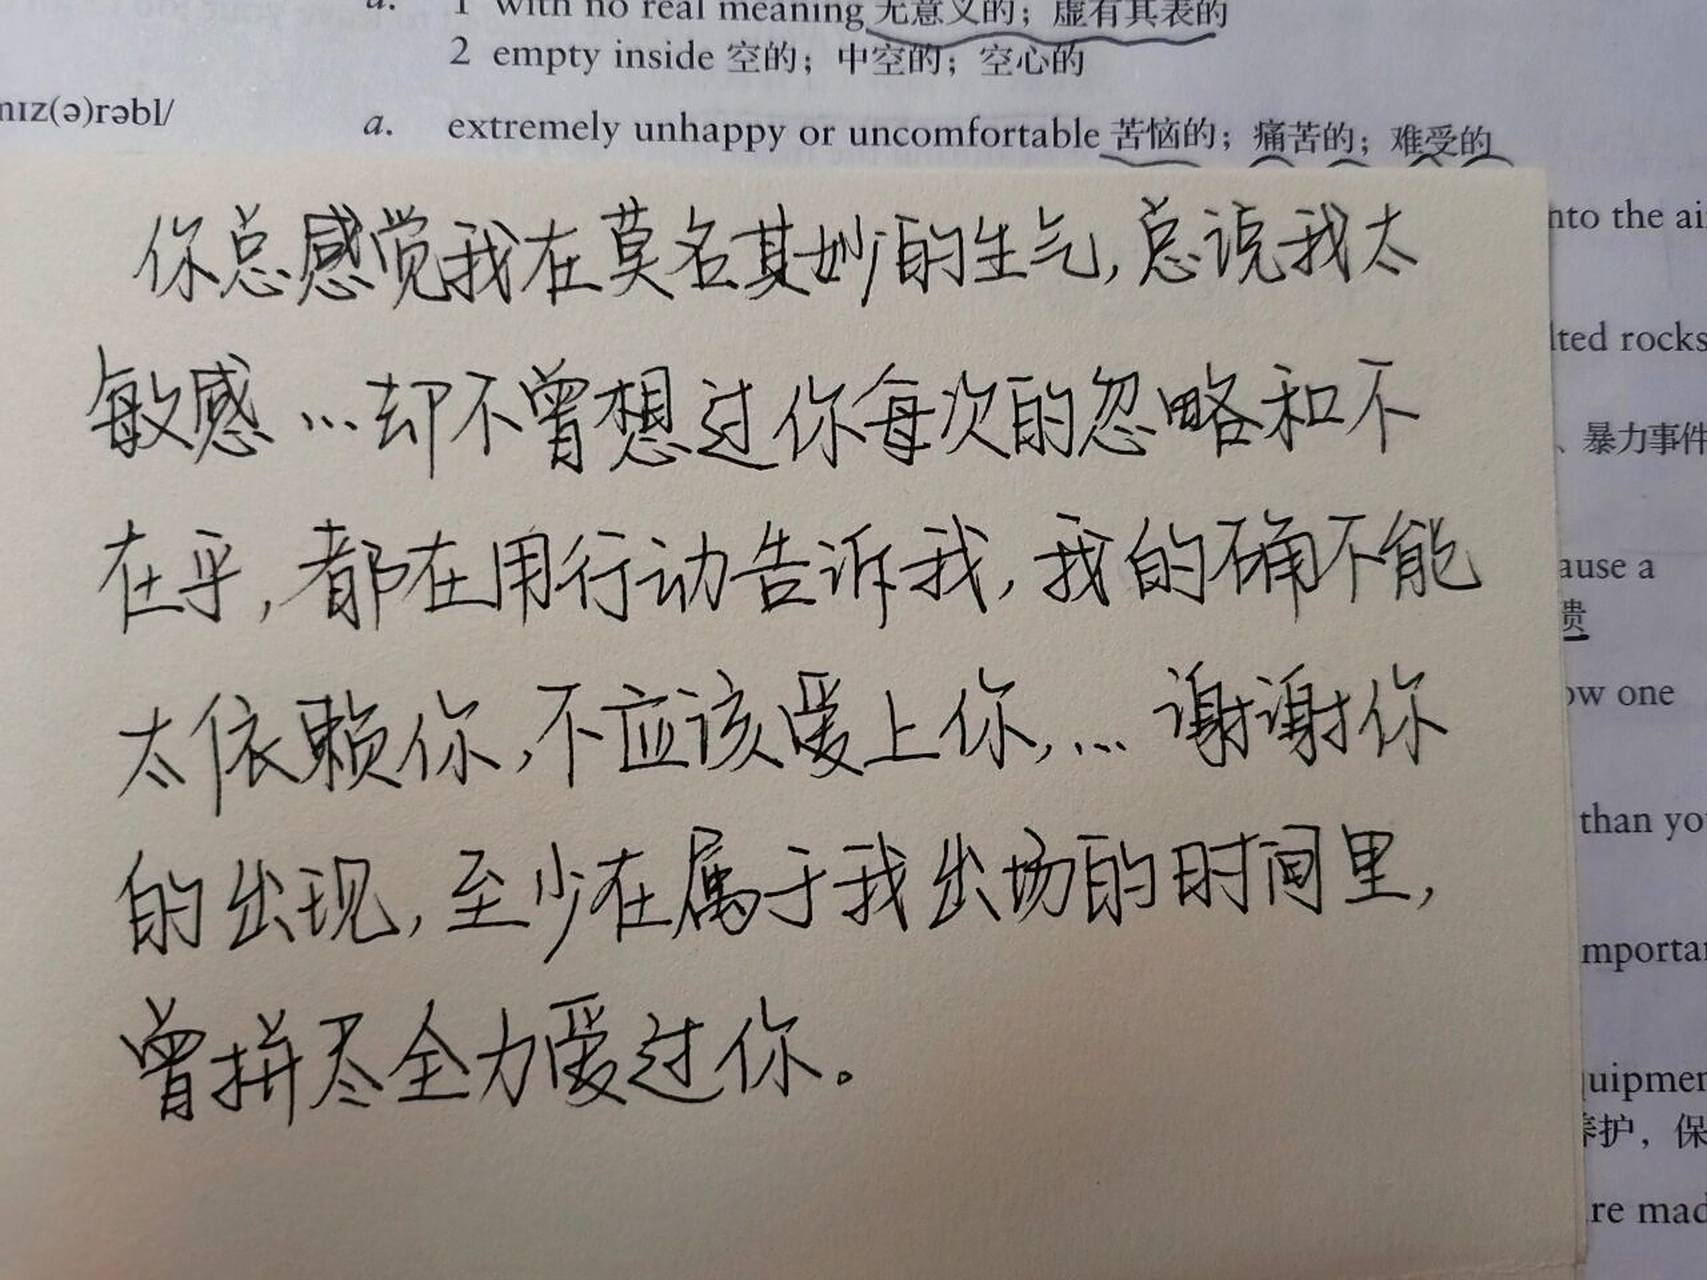 a. 1 with no real meaning 无意义的；虚有其表的
2 empty inside 空的；中空的；空心的
mɪz(ə)rəbl/ a. extremely unhappy or uncomfortable 苦恼的；痛苦的；难受的
你总感觉我在莫名其妙的生气,总说我太
敏感…却不曾想过你每次的忽略和不
在乎,都在用行动告诉我,我的确不能
太依赖你,不应该爱上你,… 谢谢你
的出现,至少在属于我出场的时间里,
曾拼尽全力爱过你。
nto the ai
lted rocks
、暴力事件
ause a
溃
ow one
than you
mportan
quipmen
养护，保
re mad